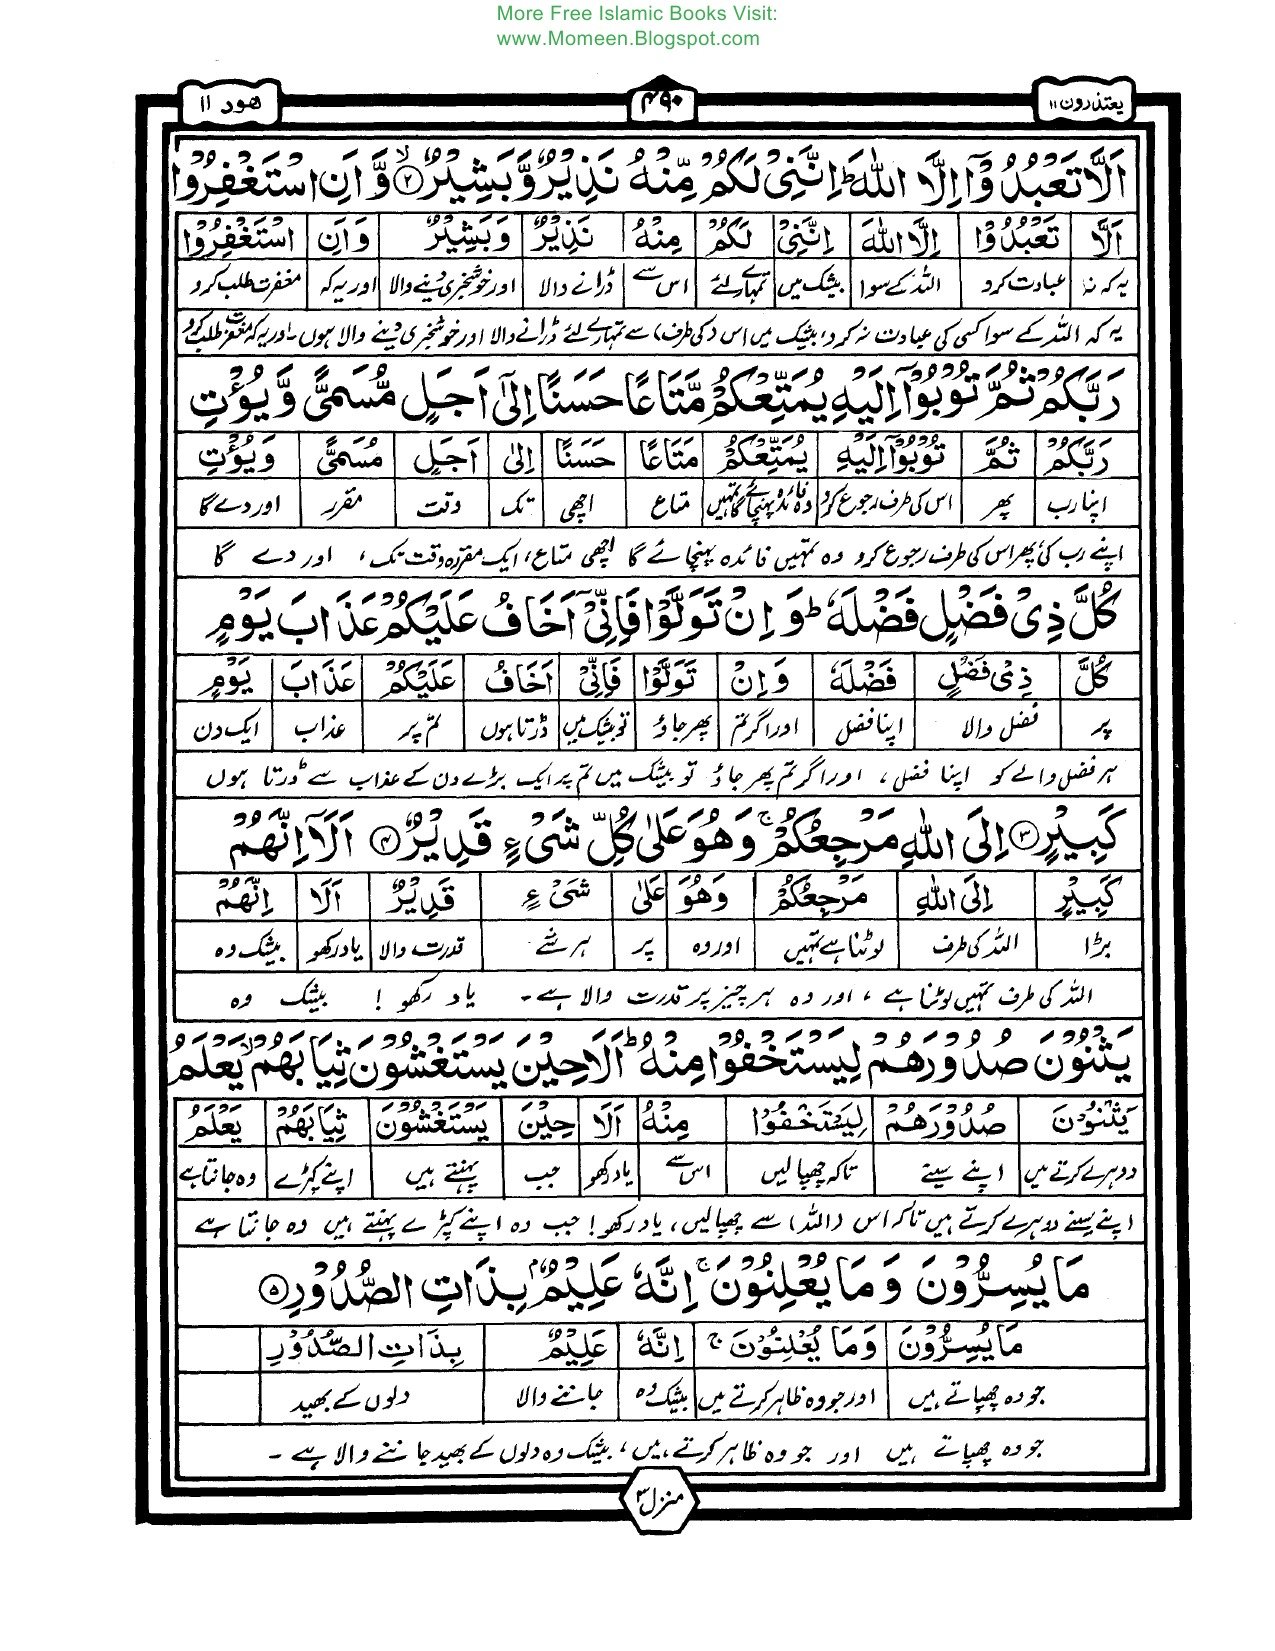 More Free Islamic Books Visit:
www.Momeen.Blogspot.com
یعتذرون ۱۱ ۴۹۰ ھود ۱۱
اَلَّا تَعْبُدُوْۤا اِلَّا اللّٰهَ ؕ اِنَّنِیْ لَكُمْ مِّنْهُ نَذِیْرٌ وَّ بَشِیْرٌ ۙ۝۲ وَّ اَنِ اسْتَغْفِرُوْا
اَلَّا تَعْبُدُوْا اِلَّا اللّٰهَ اِنَّنِیْ لَكُمْ مِنْهُ نَذِیْرٌ وَبَشِیْرٌ وَاَنِ اسْتَغْفِرُوْا
یہ کہ نہ عبادت کرو اللہ کے سوا بیشک میں تمہارے لئے اس سے ڈرانے والا اور خوشخبری دینے والا اور یہ کہ مغفرت طلب کرو
یہ کہ اللہ کے سوا کسی کی عبادت نہ کرو، بیشک میں اس (کی طرف) سے تمہارے لئے ڈرانے والا اور خوشخبری دینے والا ہوں۔ اور یہ کہ مغفرت طلب کرو
رَبَّكُمْ ثُمَّ تُوْبُوْۤا اِلَیْهِ یُمَتِّعْكُمْ مَّتَاعًا حَسَنًا اِلٰۤی اَجَلٍ مُّسَمًّی وَّ یُؤْتِ
رَبَّكُمْ ثُمَّ تُوْبُوْۤا اِلَیْهِ یُمَتِّعْكُمْ مَتَاعًا حَسَنًا اِلٰی اَجَلٍ مُسَمًّی وَیُؤْتِ
اپنا رب پھر اس کی طرف رجوع کرو وہ فائدہ پہنچائے گا تمہیں متاع اچھی تک وقت مقرر اور دے گا
اپنے رب کی پھر اس کی طرف رجوع کرو وہ تمہیں فائدہ پہنچائے گا اچھی متاع، ایک مقررہ وقت تک، اور دے گا
كُلَّ ذِیْ فَضْلٍ فَضْلَهٗ ؕ وَ اِنْ تَوَلَّوْا فَاِنِّیْۤ اَخَافُ عَلَیْكُمْ عَذَابَ یَوْمٍ
كُلَّ ذِیْ فَضْلٍ فَضْلَهٗ وَاِنْ تَوَلَّوْا فَاِنِّیْ اَخَافُ عَلَیْكُمْ عَذَابَ یَوْمٍ
پر فضل والا اپنا فضل اور اگر تم پھر جاؤ تو بیشک میں ڈرتا ہوں تم پر عذاب ایک دن
ہر فضل والے کو اپنا فضل، اور اگر تم پھر جاؤ تو بیشک میں تم پر ایک بڑے دن کے عذاب سے ڈرتا ہوں
كَبِیْرٍ ۝۳ اِلَی اللّٰهِ مَرْجِعُكُمْ ۚ وَ هُوَ عَلٰی كُلِّ شَیْءٍ قَدِیْرٌ ۝۴ اَلَاۤ اِنَّهُمْ
كَبِیْرٍ اِلَی اللّٰهِ مَرْجِعُكُمْ وَهُوَ عَلٰی شَیْءٍ قَدِیْرٌ اَلَا اِنَّهُمْ
بڑا اللہ کی طرف لوٹنا ہے تمہیں اور وہ پر ہر شے قدرت والا یاد رکھو بیشک وہ
اللہ کی طرف تمہیں لوٹنا ہے، اور وہ ہر چیز پر قدرت والا ہے۔ یاد رکھو! بیشک وہ
یَثْنُوْنَ صُدُوْرَهُمْ لِیَسْتَخْفُوْا مِنْهُ ؕ اَلَا حِیْنَ یَسْتَغْشُوْنَ ثِیَابَهُمْ ۙ یَعْلَمُ
یَثْنُوْنَ صُدُوْرَهُمْ لِیَسْتَخْفُوْا مِنْهُ اَلَا حِیْنَ یَسْتَغْشُوْنَ ثِیَابَهُمْ یَعْلَمُ
دوہرے کرتے ہیں اپنے سینے تاکہ چھپالیں اس سے یاد رکھو جب پہنتے ہیں اپنے کپڑے وہ جانتا ہے
اپنے سینے دوہرے کرتے ہیں تاکہ اس (اللہ) سے چھپالیں، یاد رکھو! جب وہ اپنے کپڑے پہنتے ہیں وہ جانتا ہے
مَا یُسِرُّوْنَ وَ مَا یُعْلِنُوْنَ ۚ اِنَّهٗ عَلِیْمٌۢ بِذَاتِ الصُّدُوْرِ ۝۵
مَا یُسِرُّوْنَ وَمَا یُعْلِنُوْنَ ۚ اِنَّهٗ عَلِیْمٌ بِذَاتِ الصُّدُوْرِ
جو وہ چھپاتے ہیں اور جو وہ ظاہر کرتے ہیں بیشک وہ جاننے والا دلوں کے بھید
جو وہ چھپاتے ہیں اور جو وہ ظاہر کرتے ہیں، بیشک وہ دلوں کے بھید جاننے والا ہے۔
منزل ۳